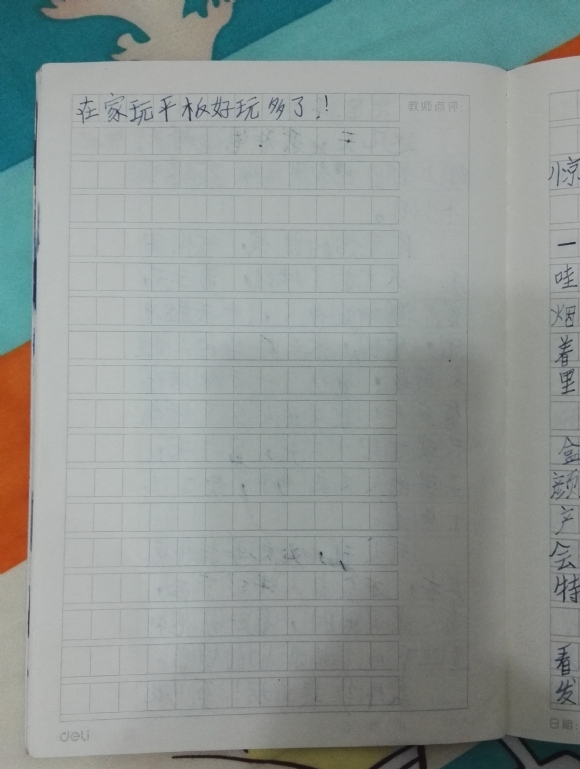 在家玩平板好玩多了!
教师点评
deli
惊
一
哇
烟
着
里
盒
颜
产
会
特
看
发
日期: